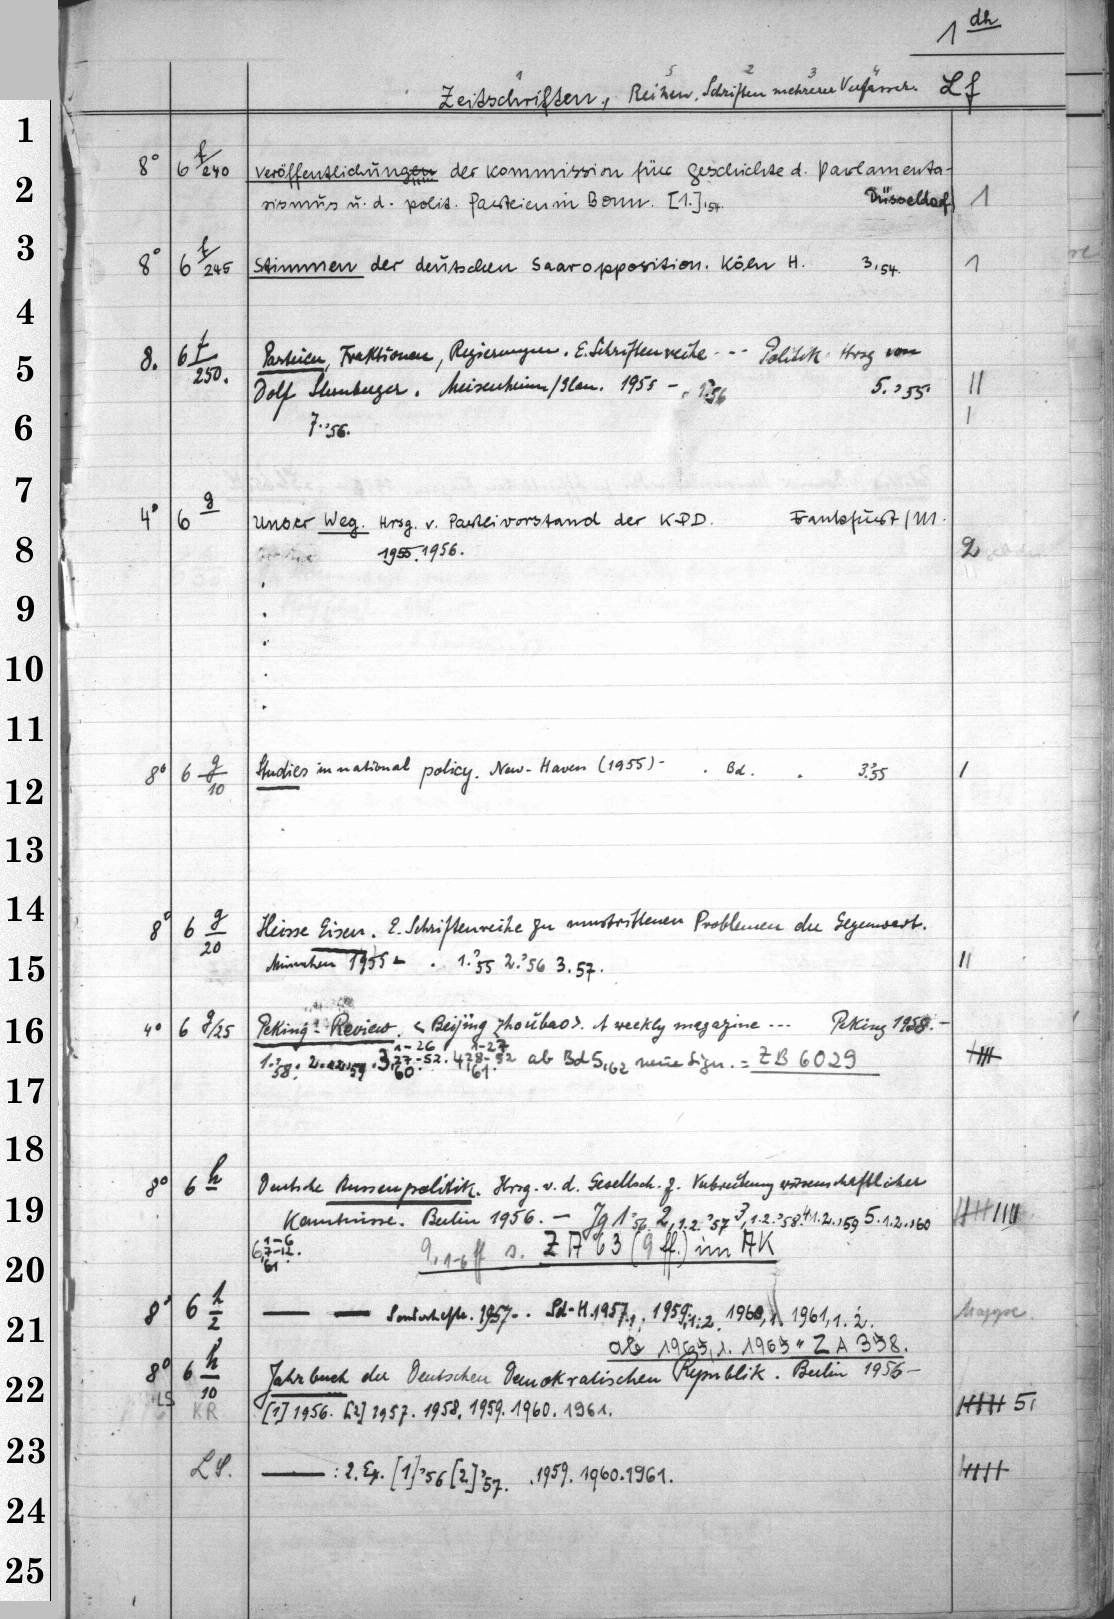 1 dh
Zeitschriften, Reihen, Schriften mehrerer Verfasser. Lf
1 5 2 3 4
1
8° 6 f/240 Veröffentlichungen der Kommission für Geschichte d. Parlamenta-
2
rismus u. d. polit. Parteien in Bonn. [1.],'54. Düsseldorf 1
3
8° 6 f/245 Stimmen der deutschen Saaropposition. Köln H. 3,54. 1
4
8. 6 f/250. Parteien, Fraktionen, Regierungen. E. Schriftenreihe --- Politik. Hrsg von
5
Dolf Sternberger. Meisenheim/Glan. 1955 - . 1.'56 5.'55. II
6
7.'56. I
7
4° 6 g Unser Weg. Hrsg. v. Parteivorstand der KPD. Frankfurt/M.
8
1955. 1956. 2
9
10
11
8° 6 g/10 Studies in national policy. New-Haven (1955)- . Bd. . 3.'55 I
12
13
14
8° 6 g/20 Heisse Eisen. E. Schriftenreihe zu umstrittenen Problemen der Gegenwart.
15
München 1955 - . 1.'55 2.'56 3.57. II
16
4° 6 g/25 Peking-Review. < Beijing zhoubao>. A weekly magazine --- Peking 1958. -
1.'58. 2.'59. 3,1-26 27-52.'60. 4,1-27 28-52'61. ab Bd 5,'62 neue Sign. = ZB 6029
17
18
8° 6 h Deutsche Aussenpolitik. Hrsg. v. d. Gesellsch. z. Verbreitung wissenschaftlicher
19
Kenntnisse. Berlin 1956. - Jg 1'56 2,1.2.'57 3,1.2.'58. 4,1.2.'59 5.1.2.'60
6,1-6 7-12.'61.
20
9,1-6 ff s. ZA 63 (9 ff.) im AK
21
8° 6 h/2 — — Sonderhefte. 1957-. Sd-H. 1957,1, 1959,1.2. 1960,1. 1961,1.2. Mappe
ab 1963,1. 1963 = ZA 338.
22
8° 6 h/10 Jahrbuch der Deutschen Demokratischen Republik. Berlin 1956-
LS KR [1] 1956. [2] 1957. 1958. 1959. 1960. 1961. 5
23
LS. — : 2. Ex. [1]'56 [2]'57. .1959. 1960. 1961.
24
25